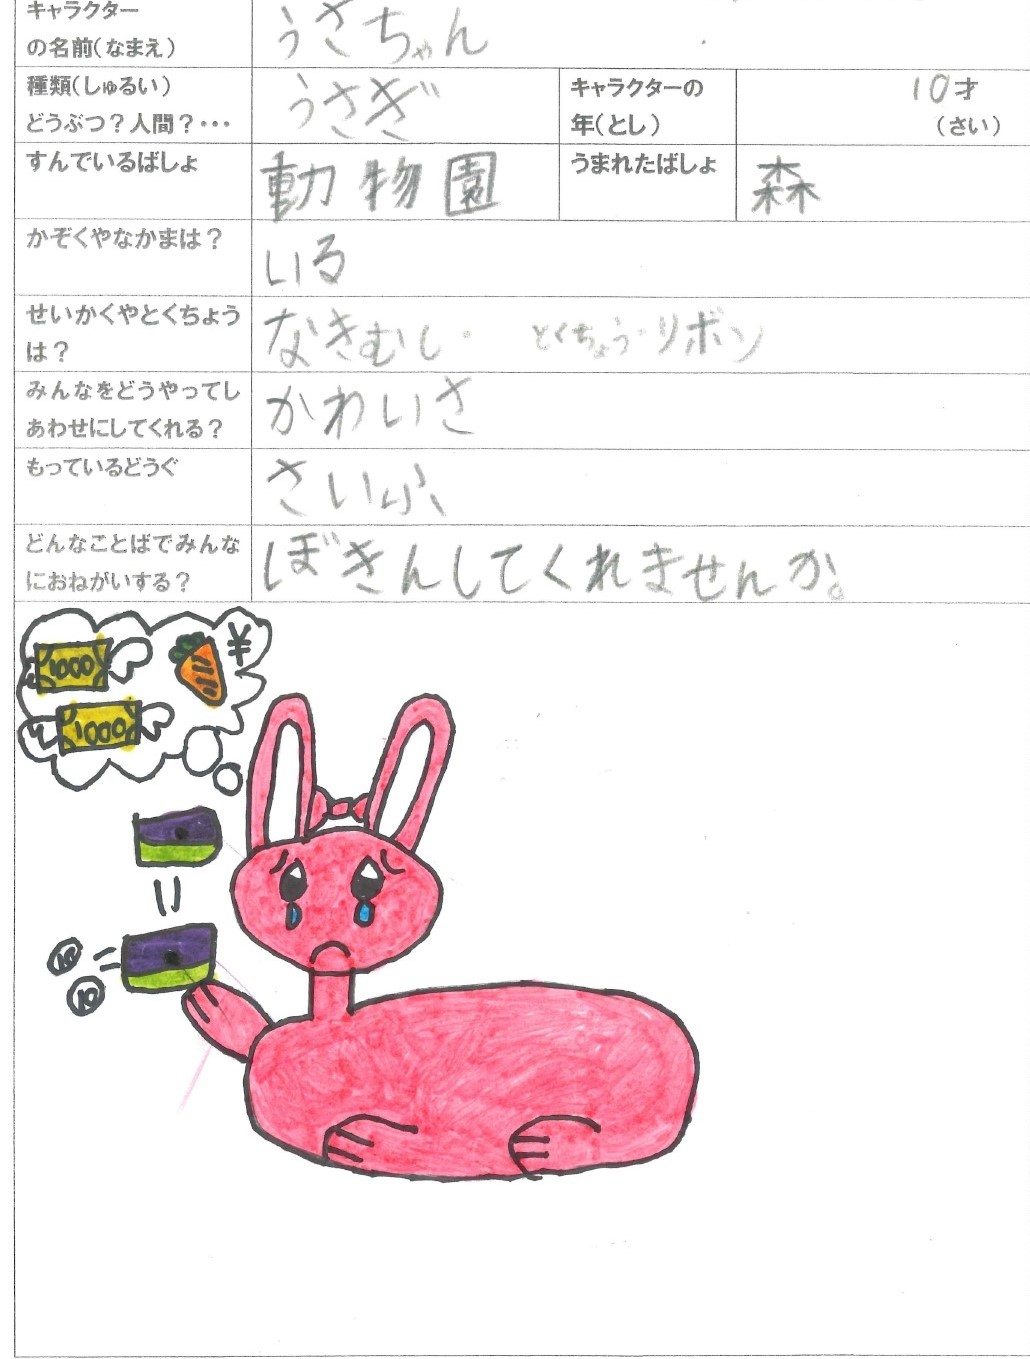 キャラクター
の名前(なまえ)
うさちゃん
種類(しゅるい)
どうぶつ？人間？・・・
うさぎ
キャラクターの
年(とし)
10才
(さい)
すんでいるばしょ
動物園
うまれたばしょ
森
かぞくやなかまは？
いる
せいかくやとくちょう
は？
なきむし・ とくちょう・リボン
みんなをどうやってし
あわせにしてくれる？
かわいさ
もっているどうぐ
さいふ
どんなことばでみんな
におねがいする？
ぼきんしてくれませんか。
1000
¥
1000
10
10